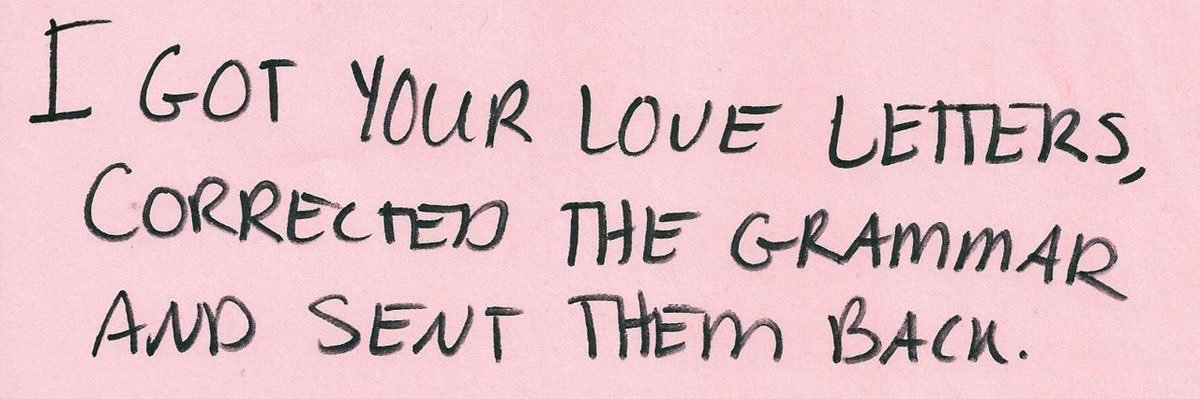 I GOT YOUR LOVE LETTERS,
CORRECTED THE GRAMMAR
AND SENT THEM BACK.